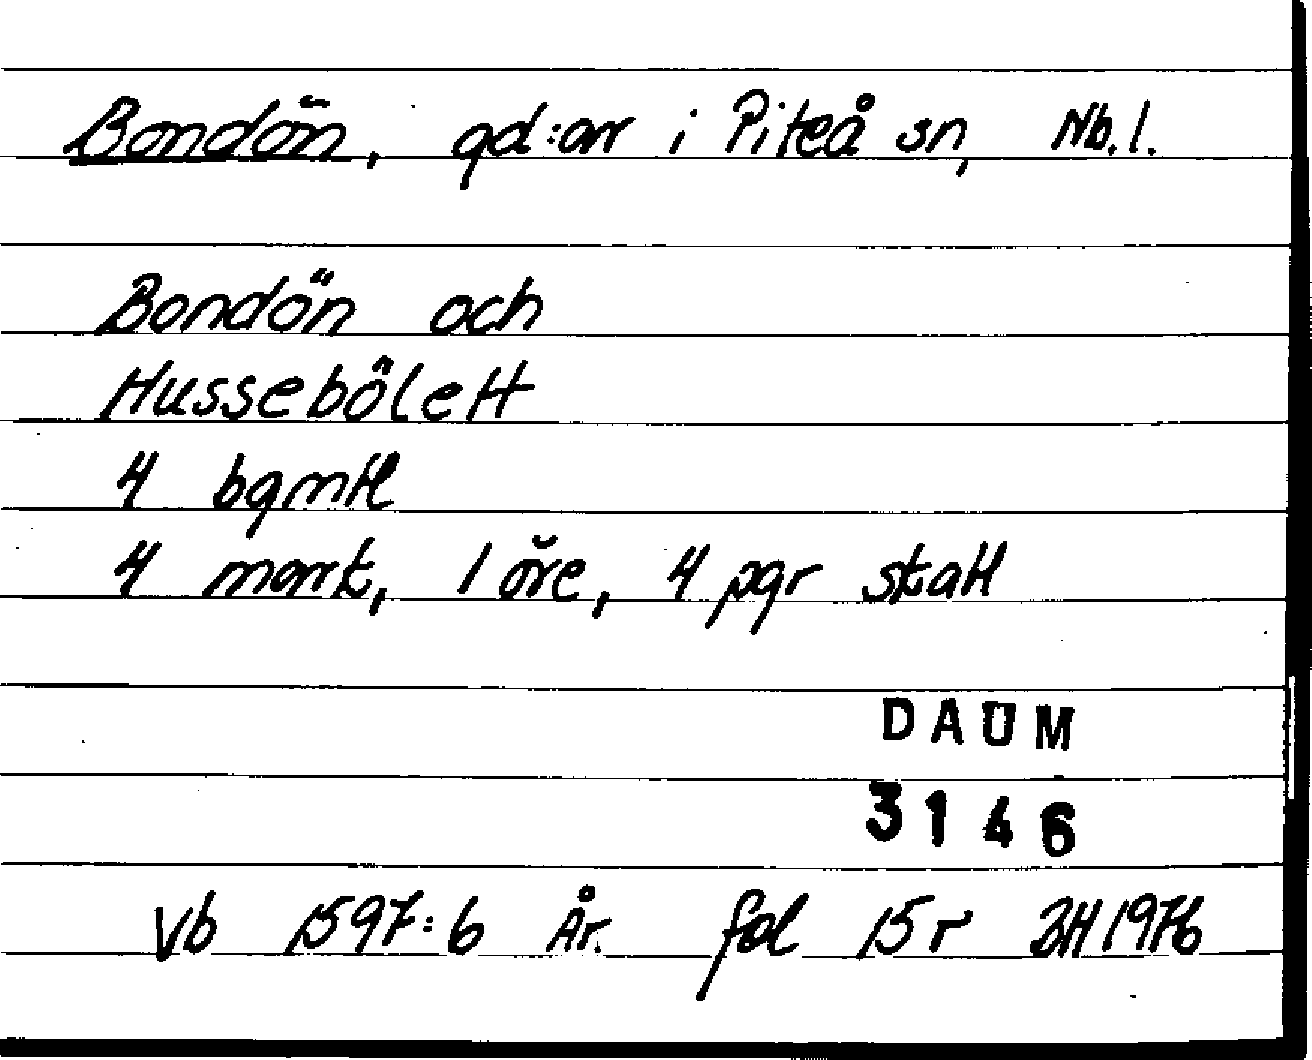 Bondön, gd:ar i Piteå sn, Nb.l.
Bondön och
Hussebölett
4 bgmtl
4 mark, 1 öre, 4 pgr skatt
DAUM
3146
Vb 1597:6 År. fol 15r BH 1976